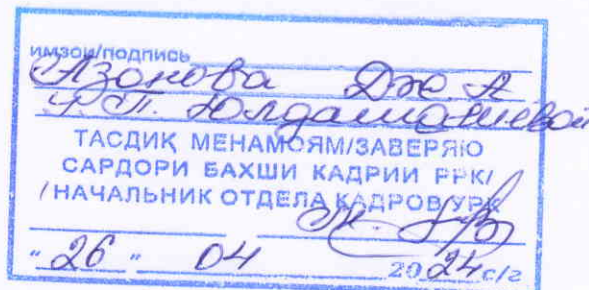 имзои/подпись
Азонова Дж. А
Ч.П. Юлдашалиевой
ТАСДИҚ МЕНАМОЯМ/ЗАВЕРЯЮ
САРДОРИ БАХШИ КАДРИИ РРК/
/НАЧАЛЬНИК ОТДЕЛА КАДРОВ УРК
"26" 04 2024 с/г